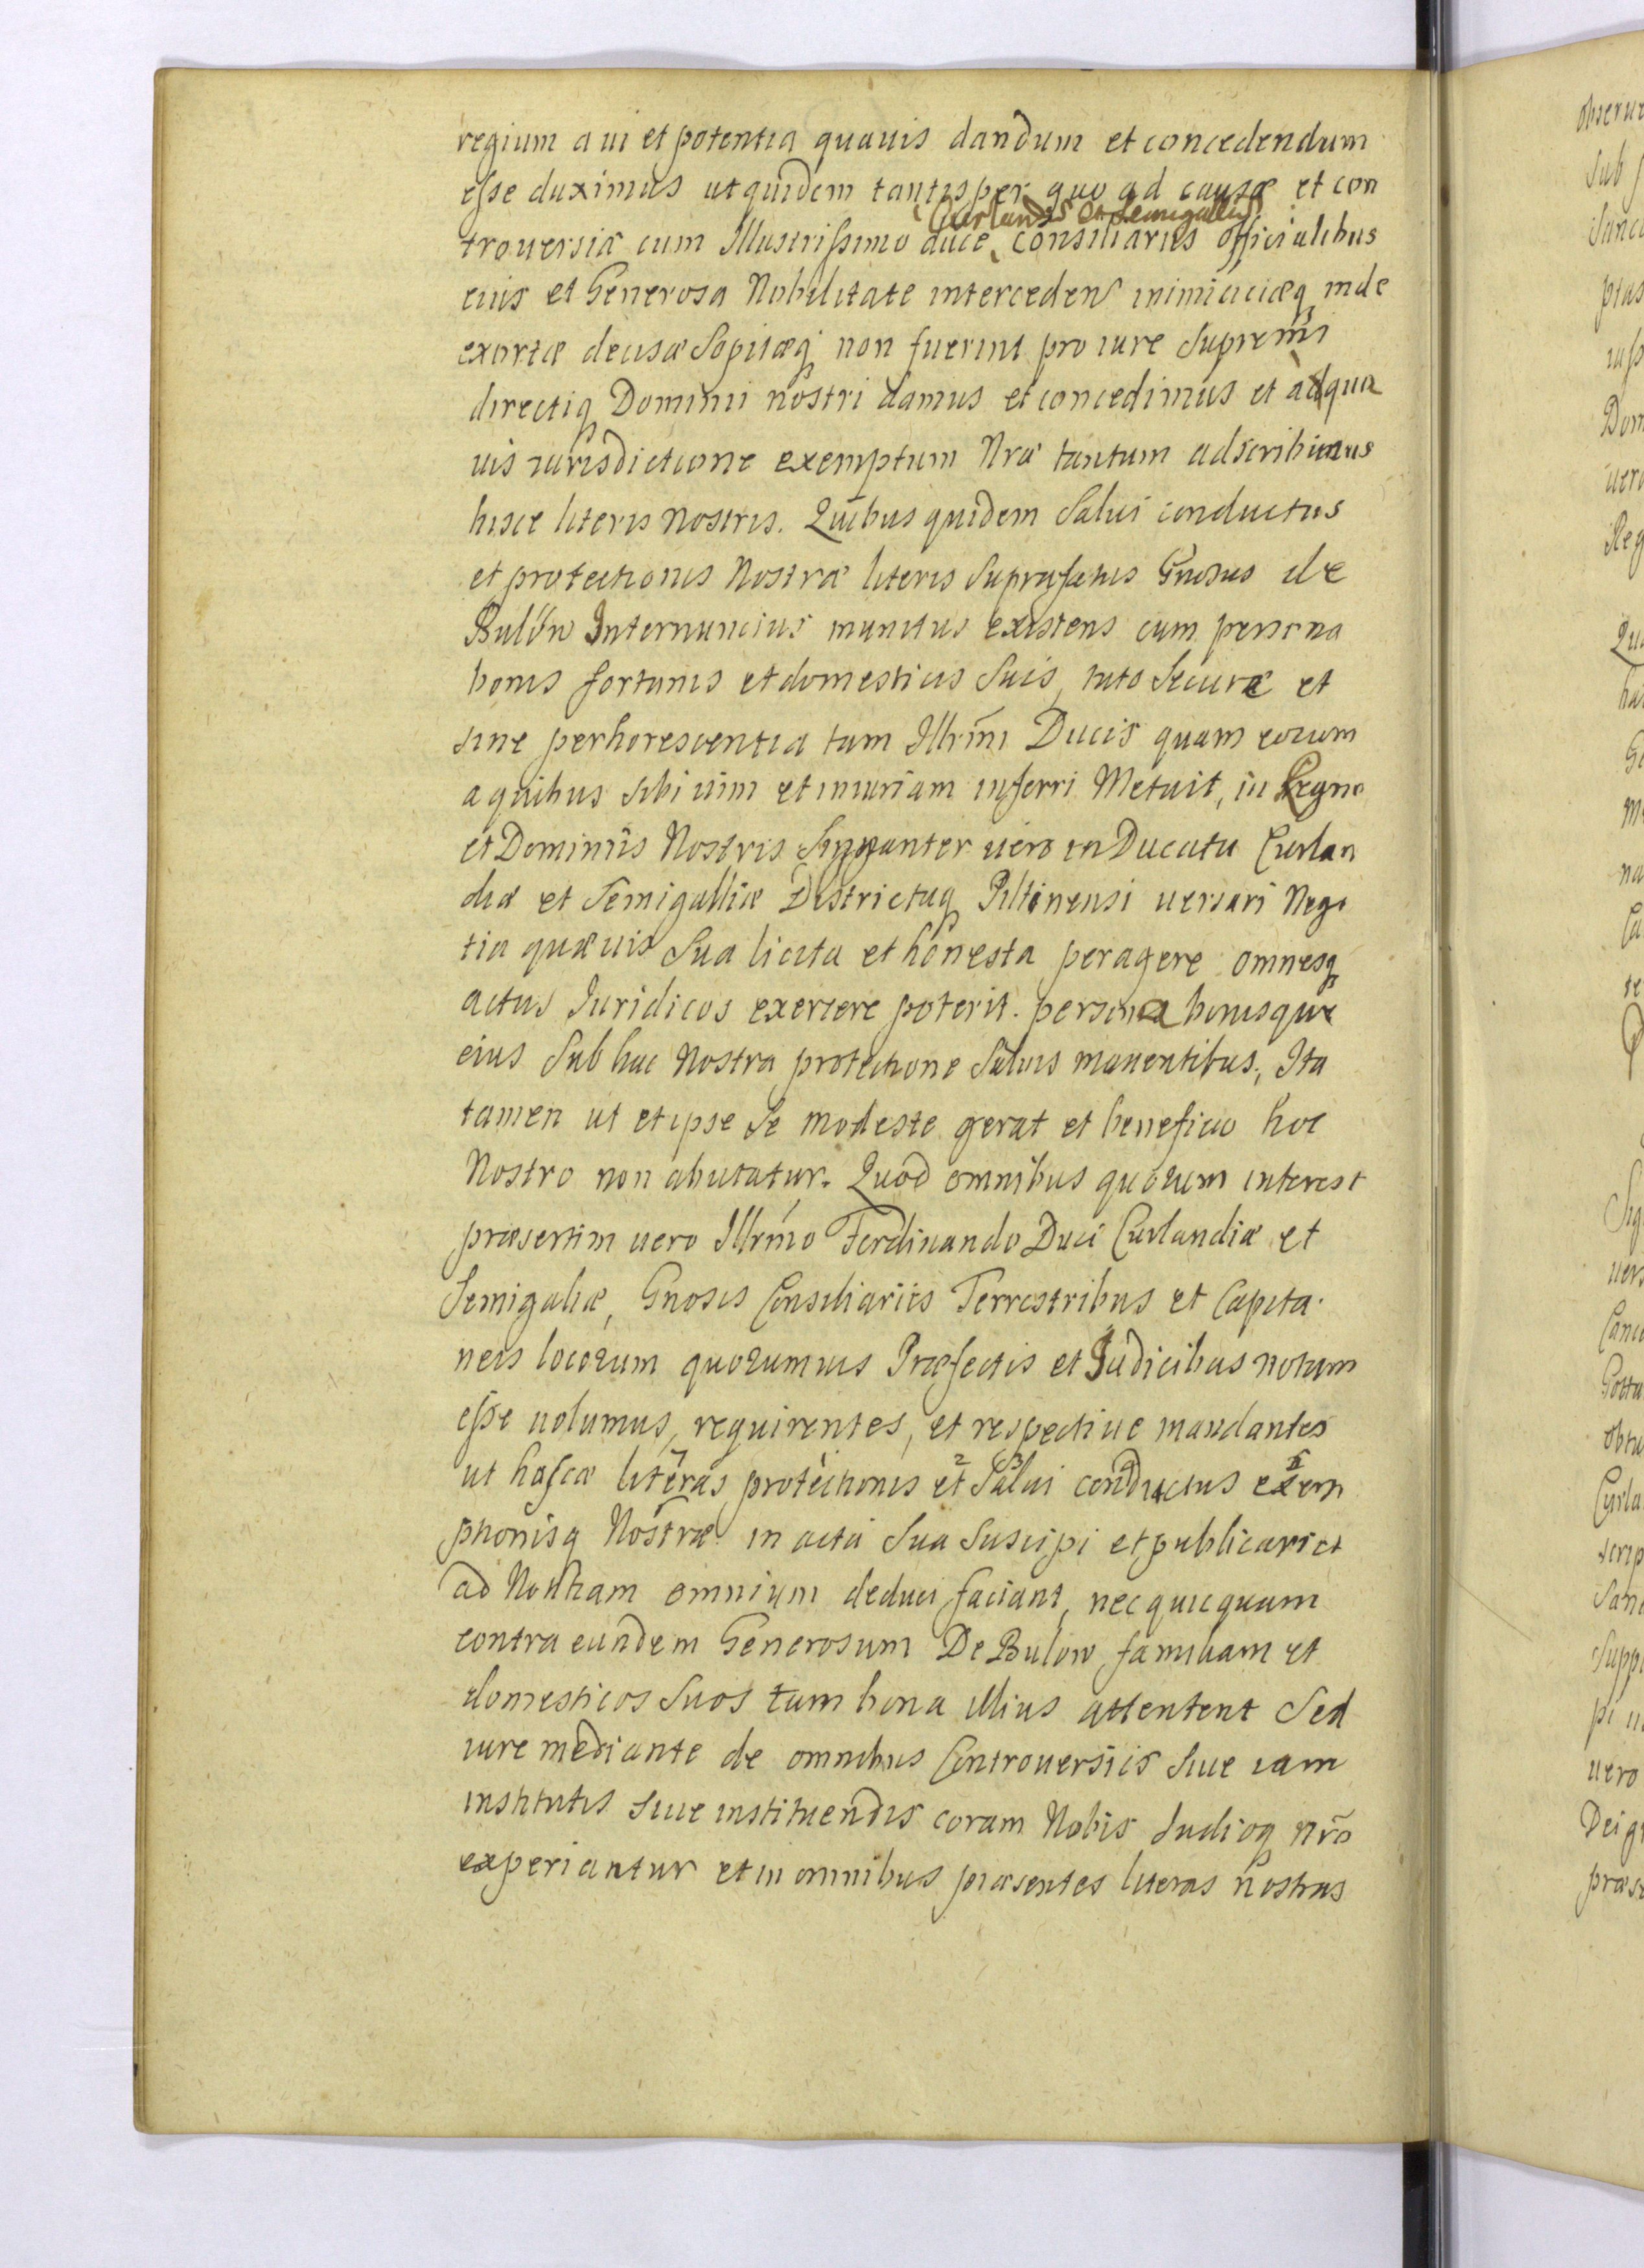 regium a ui et potentia quauis dandum et concedendum
esse duximus utquidem tantisper quo ad causæ et con
Curlandiæ et Semigalliæ
trouersiæ cum Illustrissimo duce, consiliariis officialibus
eius et Generosa Nobilitate interceden inimiciciæq inde
exortæ decisæ Sopitæq non fuerint pro iure Supremi
directiq Dominii nostri damus et concedimus et a qua
uis iurisdictione exemptum Nræ tantum adscribimus
hisce literis Nostris. Quibus quidem Salui conductus
et protectionis Nostræ literis Suprafatus Gnosus de
Bulöw Internuncius munitus existens cum persona
bonis fortunis et domesticis Suis, tuto Secure et
sine perhorescentia tam Illrmi Ducis quam eorum
a quibus sibi uim et iniuriam inferri Metuit, in Regno
et Dominiis Nostris Signanter uero in Ducatu Curlan
diæ et Semigalliæ Districtuq Piltinensi uersari Nego
tia quæuis Sua licita et honesta peragere omnesq
actus Iuridicos exercere poterit. persona bonisque
eius Sub hac Nostra protectione Saluis manentibus; Ita
tamen ut et ipse Se modeste gerat et beneficio hoc
Nostro non abutatur. Quod omnibus quorum interest
præsertim uero Illrmo Ferdinando Duci Curlandiæ et
Semigaliæ, Gnosis Consiliariis Terrestribus et Capita
neis locorum quorumuis Præfectis et Iudicibus notum
esse uolumus, requirentes, et respectiue mandantes
ut hasce literas protectionis et Salui conductus exem
ptionisq Nostræ in acta Sua Suscipi et publicari et
ad Notitiam omnium deduci faciant, nec quicquam
contra eundem Generosum De Bulow familiam et
domesticos Suos tum bona illius attentent Sed
iure mediante de omnibus Controuersiis Siue iam
institutis Siue instituendis coram Nobis Iudicioq nro
experiantur et in omnibus præsentes literas Nostras